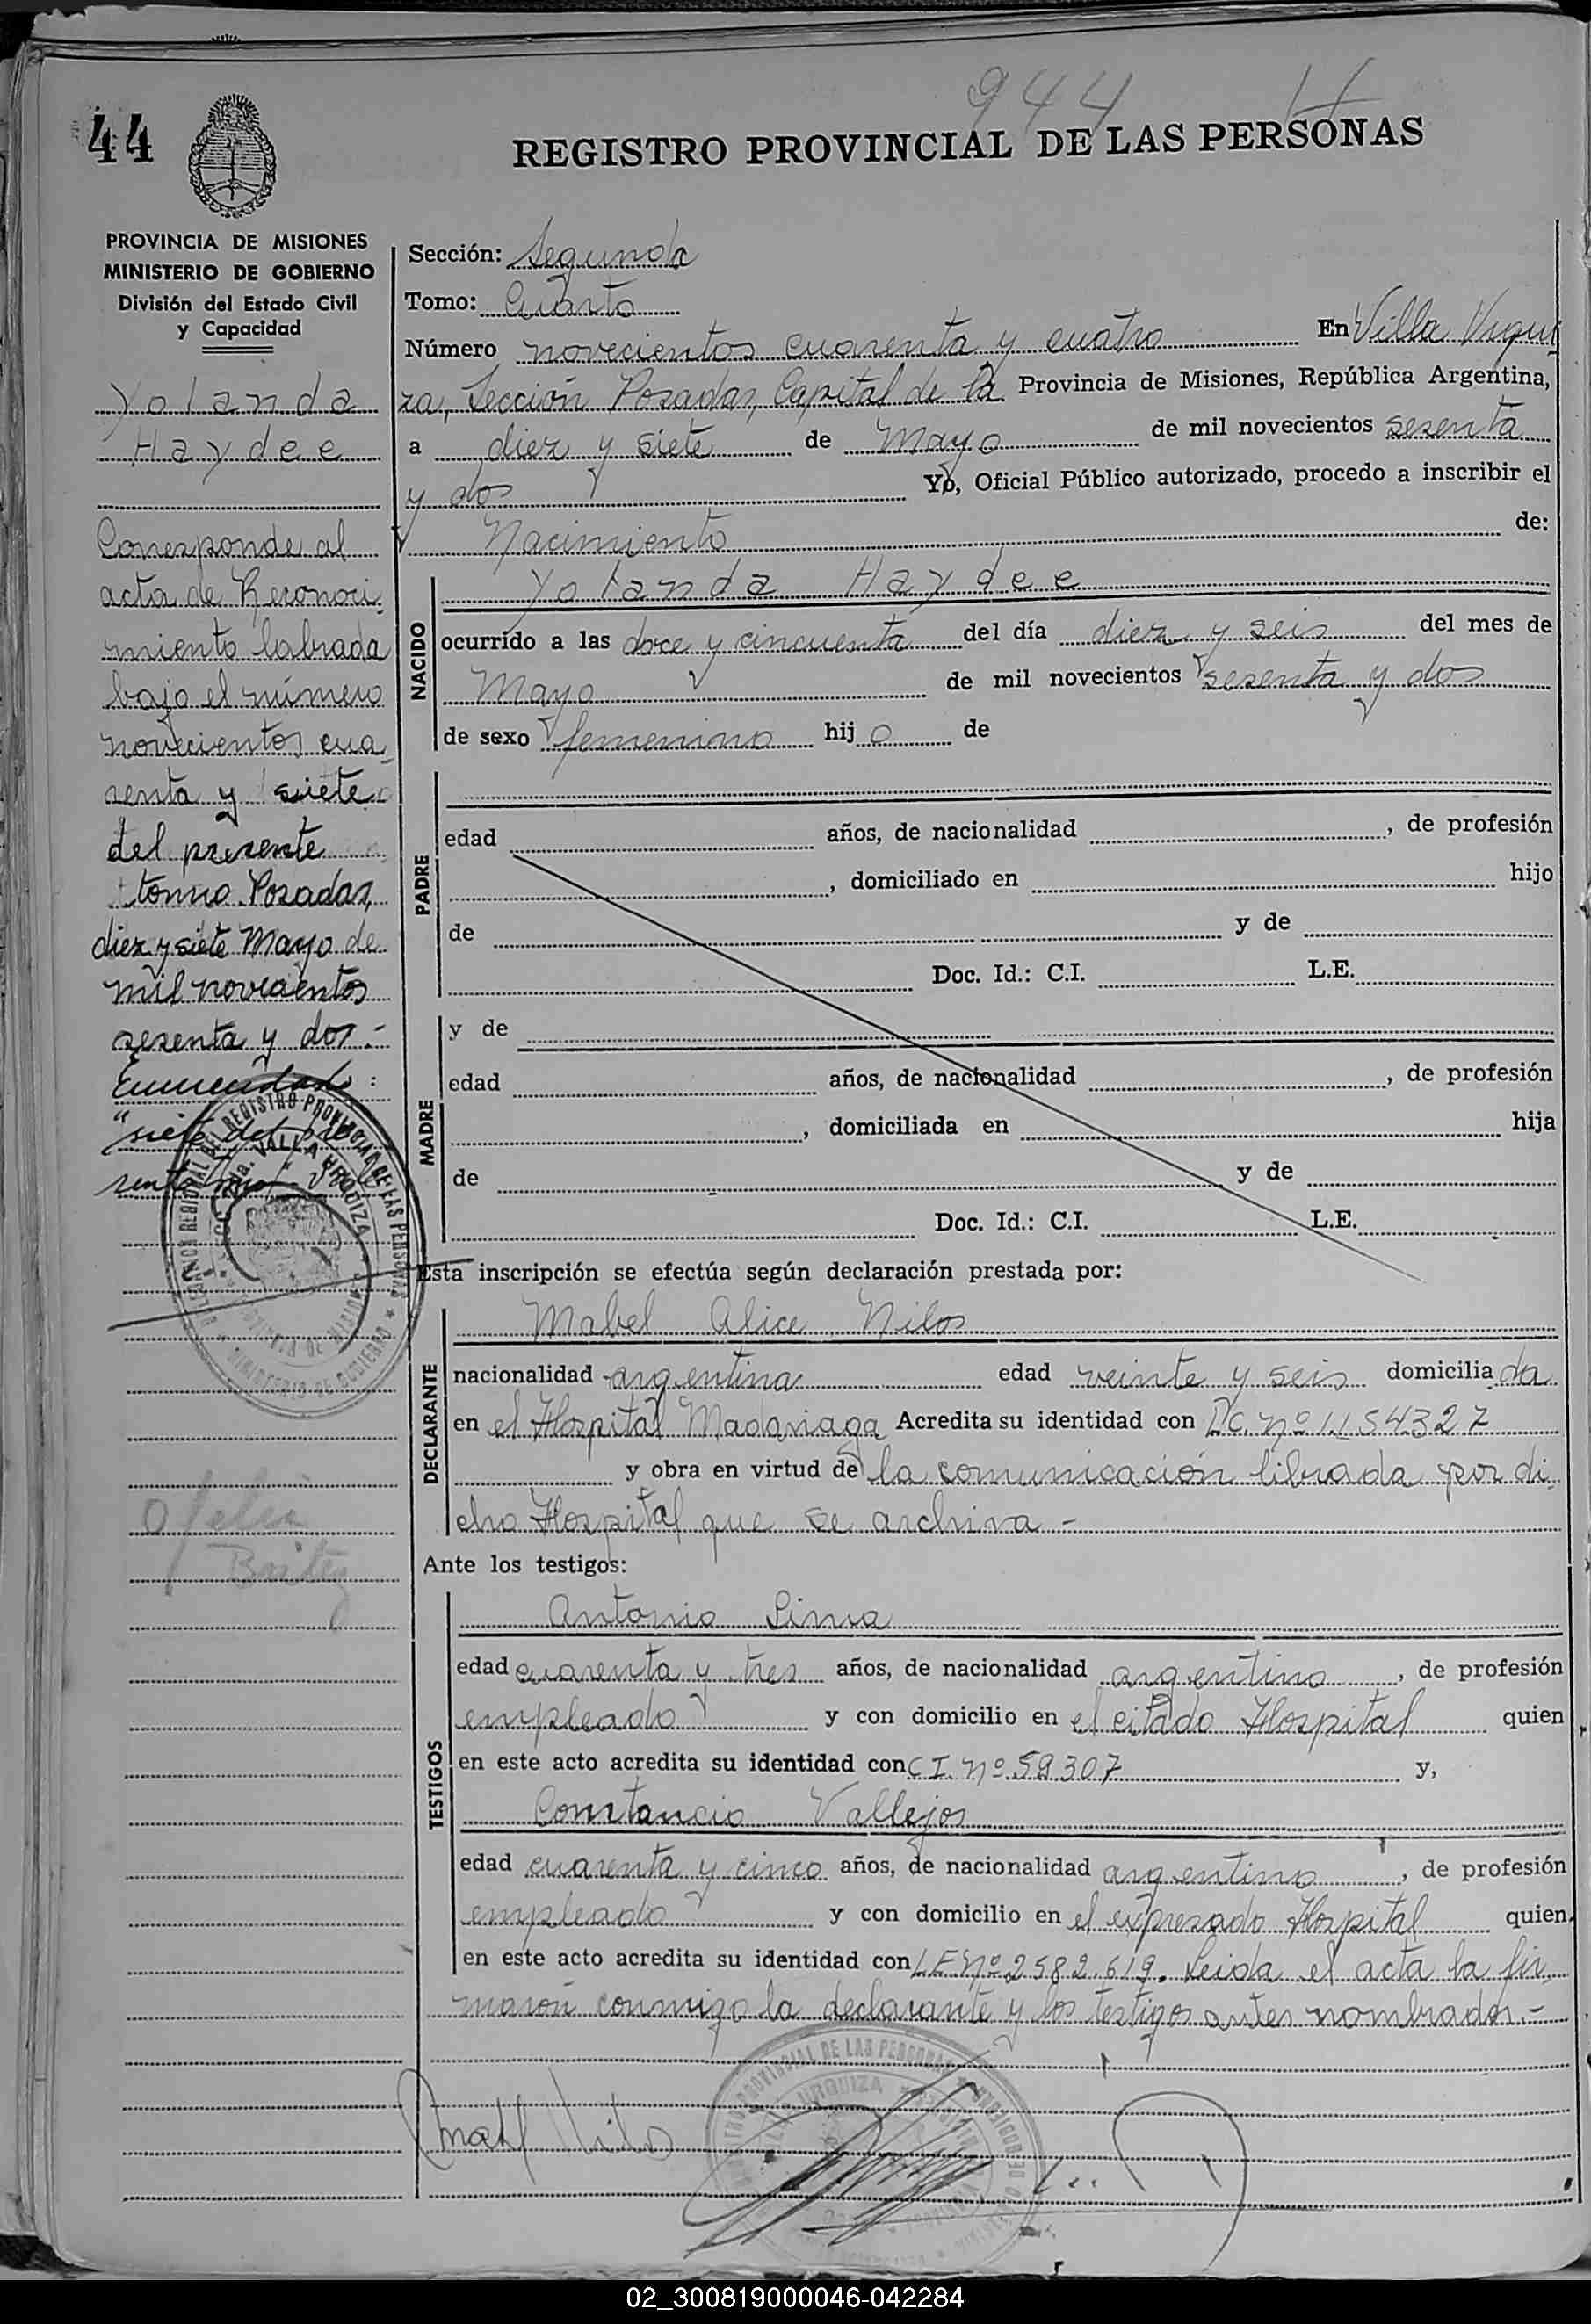 944
44
REGISTRO PROVINCIAL DE LAS PERSONAS
PROVINCIA DE MISIONES
MINISTERIO DE GOBIERNO
División del Estado Civil
y Capacidad
Yolanda
Haydee
Corresponde al
acta de Reconoci-
miento labrada
bajo el número
novecientos cua-
renta y siete
del presente
tomo. Posadas,
diez y siete Mayo de
mil novecientos
sesenta y dos.-
Enmendado:
"siete del pre
sente
Ofelia
Benitez
Sección: Segunda
Tomo: Cuarto
Número novecientos cuarenta y cuatro En Villa Urqui
za, Sección Posadas, Capital de la Provincia de Misiones, República Argentina,
a diez y siete de Mayo de mil novecientos sesenta
y dos Yo, Oficial Público autorizado, procedo a inscribir el
Nacimiento de:
NACIDO
Yolanda Haydee
ocurrido a las doce y cincuenta del día diez y seis del mes de
Mayo de mil novecientos sesenta y dos
de sexo femenino hij o de
PADRE
edad años, de nacionalidad , de profesión
, domiciliado en hijo
de y de
Doc. Id.: C.I. L.E.
MADRE
y de
edad años, de nacionalidad , de profesión
, domiciliada en hija
de y de
Doc. Id.: C.I. L.E.
Esta inscripción se efectúa según declaración prestada por:
DECLARANTE
Mabel Alice Nilos
nacionalidad argentina edad veinte y seis domicilia da
en el Hospital Madariaga Acredita su identidad con L.C. Nº 1.154.327
y obra en virtud de la comunicación librada por di
cho Hospital que se archiva -
Ante los testigos:
TESTIGOS
Antonio Lima
edad cuarenta y tres años, de nacionalidad argentino , de profesión
empleado y con domicilio en el citado Hospital quien
en este acto acredita su identidad con C.I. Nº 59.307 y,
Constancio Vallejos
edad cuarenta y cinco años, de nacionalidad argentino , de profesión
empleado y con domicilio en el expresado Hospital quien
en este acto acredita su identidad con L.E Nº 2.582.619. Leida el acta la fir
maron conmigo la declarante y los testigos antes nombrados.-
02_300819000046-042284